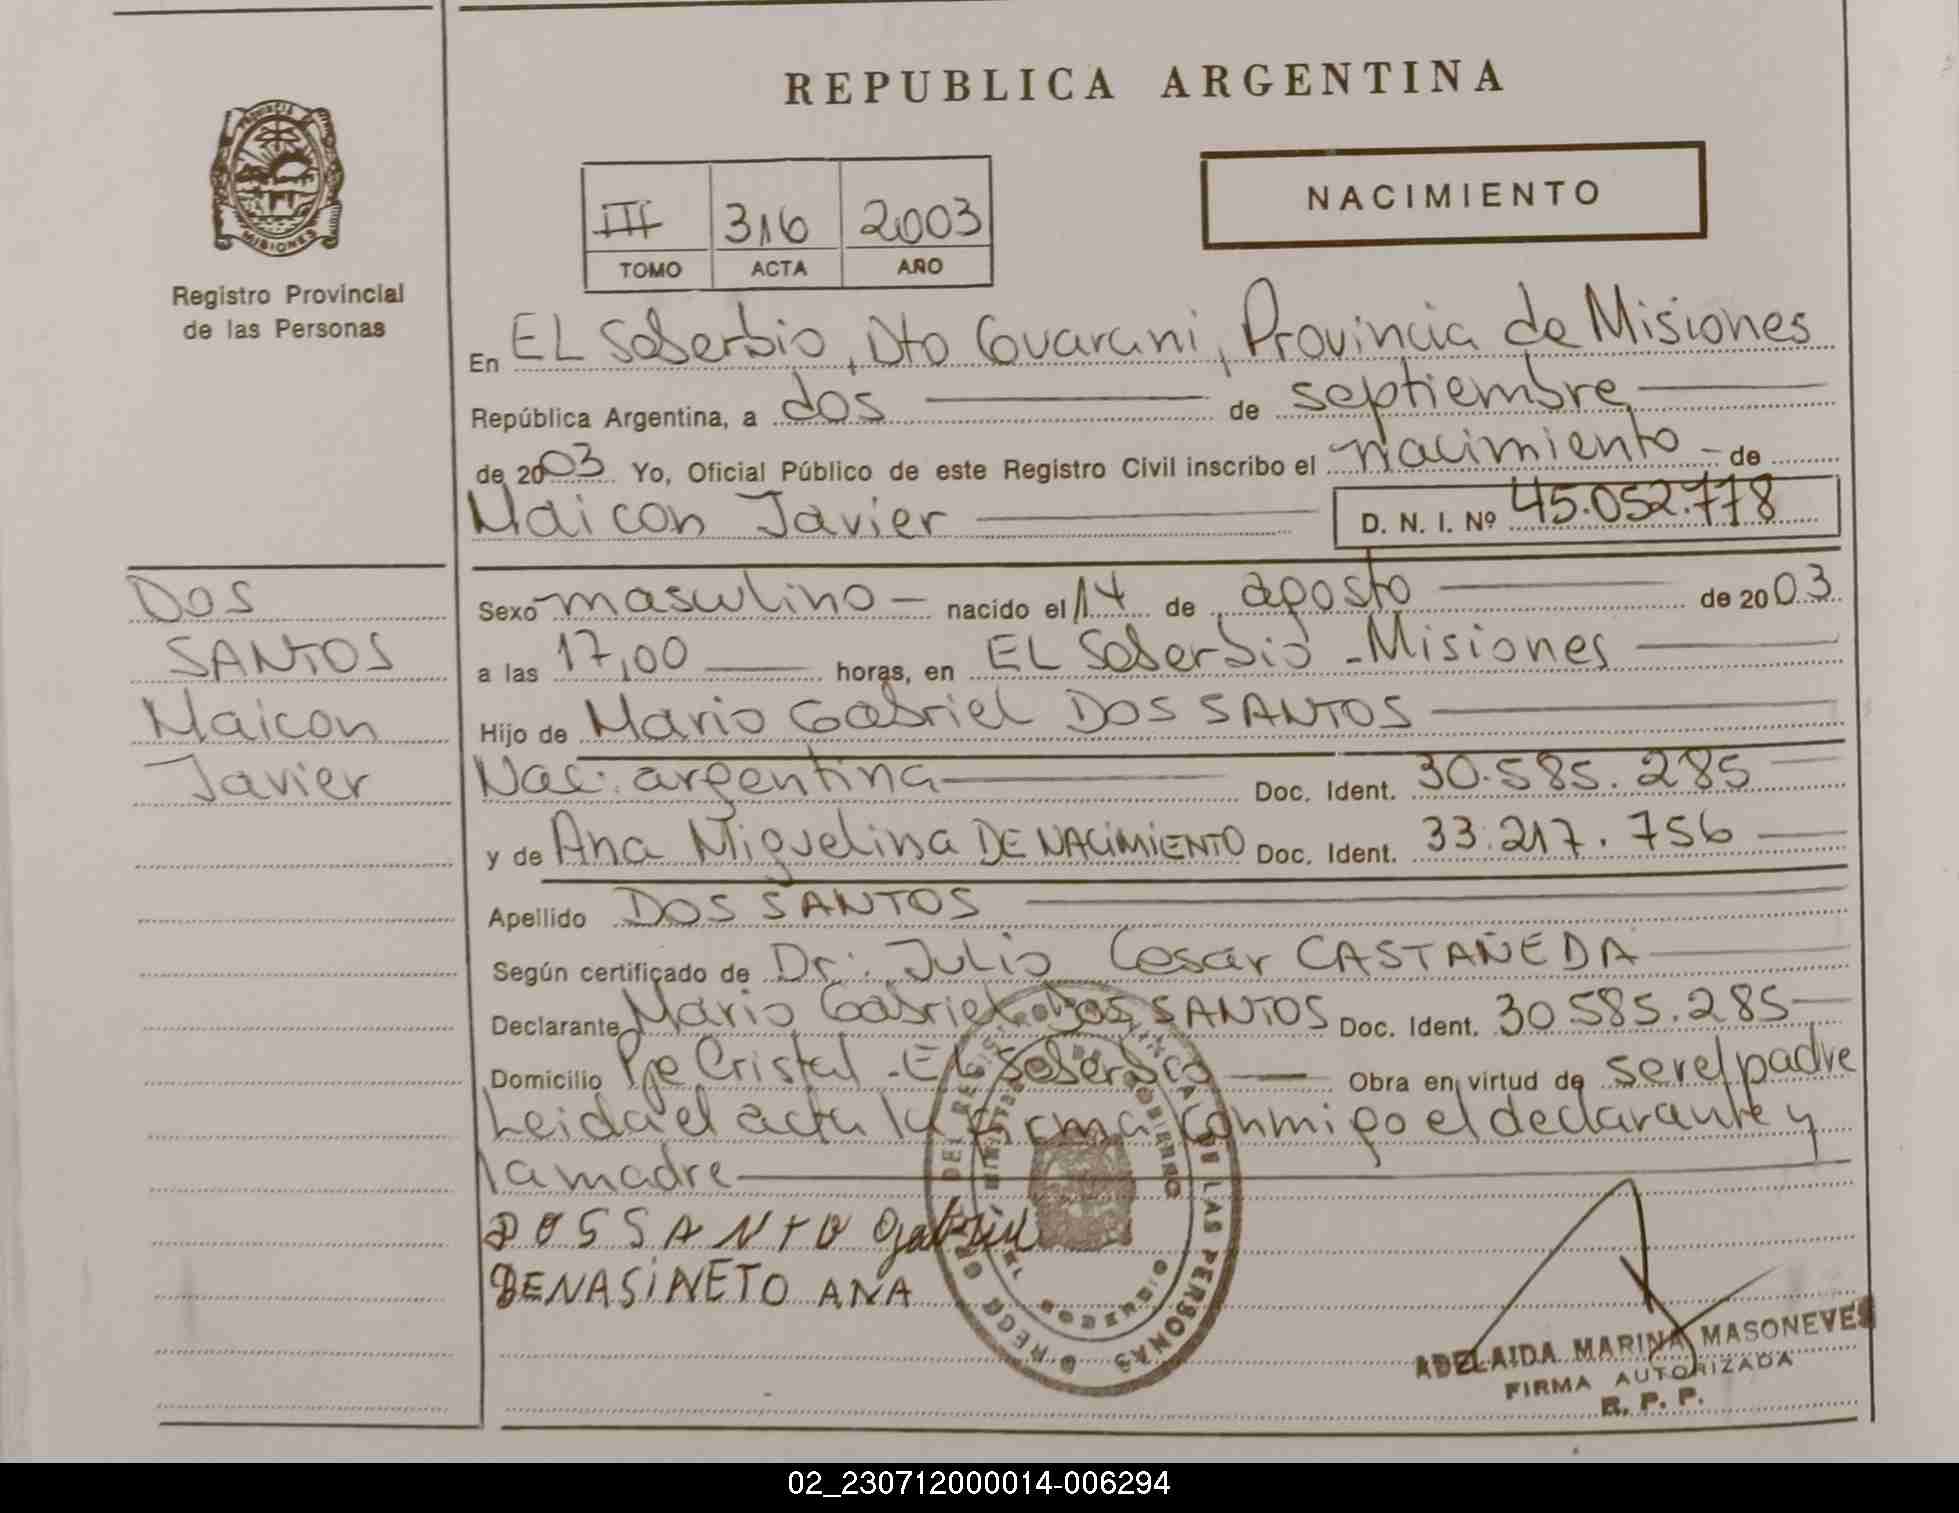 REPUBLICA ARGENTINA
PROVINCIA
MISIONES
Registro Provincial
de las Personas
III 316 2003
TOMO ACTA AÑO
NACIMIENTO
En EL Soberbio, Dto Guarani, Provincia de Misiones
República Argentina, a dos de septiembre
de 2003 Yo, Oficial Público de este Registro Civil inscribo el nacimiento de
Maicon Javier D. N. I. Nº 45.052.778
DOS
SANTOS
Maicon
Javier
Sexo masculino nacido el 14 de agosto de 2003
a las 17,00 horas, en EL Soberbio - Misiones
Hijo de Mario Gabriel DOS SANTOS
Nac: argentina Doc. Ident. 30.585.285
y de Ana Miguelina DE NACIMIENTO Doc. Ident. 33.217.756
Apellido DOS SANTOS
Según certificado de Dr. Julio Cesar CASTAÑEDA
Declarante Mario Gabriel Dos SANTOS Doc. Ident. 30585.285
Domicilio Pje Cristal - EL Soberbio Obra en virtud de ser el padre
Leida el acta la firma conmigo el declarante y
la madre
DOSSANTO Gabriel
DENASINETO ANA
DE LAS PERSONAS
ADELAIDA MARINA MASONEVES
FIRMA AUTORIZADA
R. P. P.
02_230712000014-006294